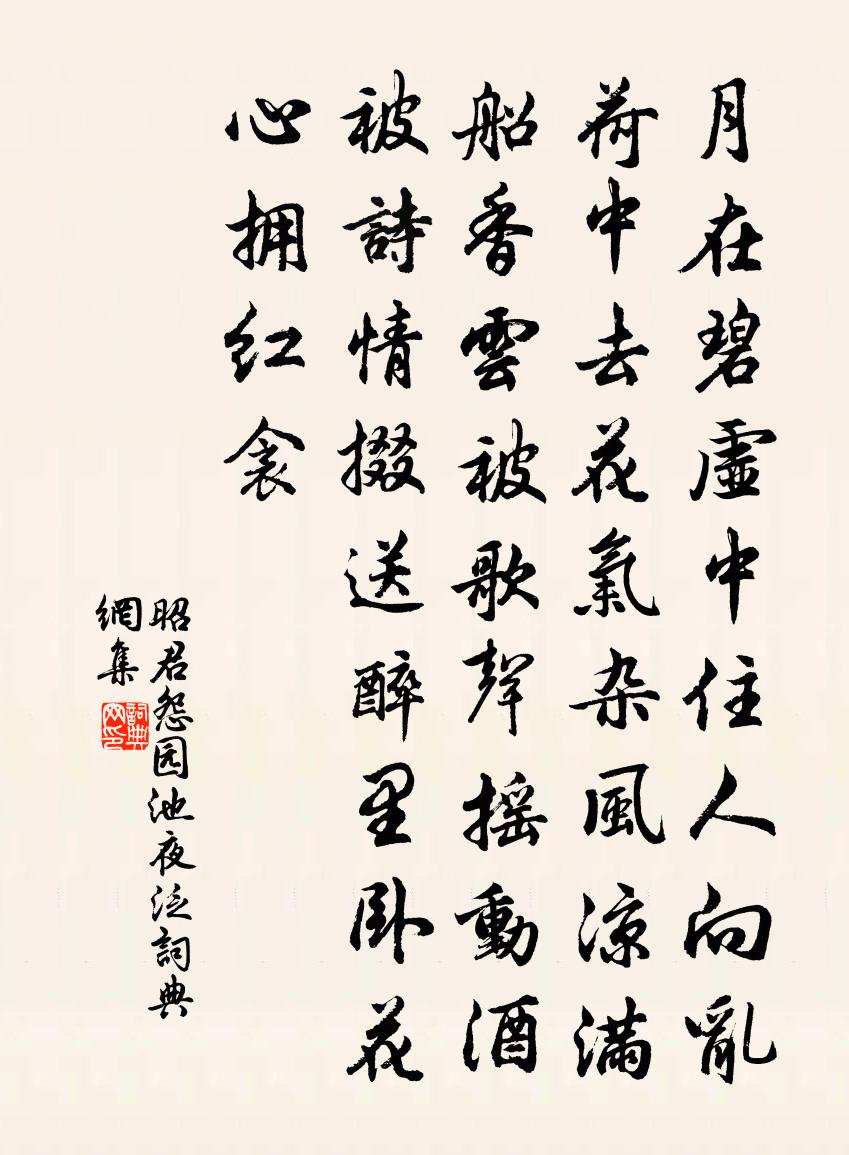 月在碧虛中住人向亂
荷中去花氣杂風凉滿
船香雲被歌聲摇動酒
被詩情掇送醉里卧花
心拥红衾
昭君怨园池夜泛詞典
網集
詞典网印